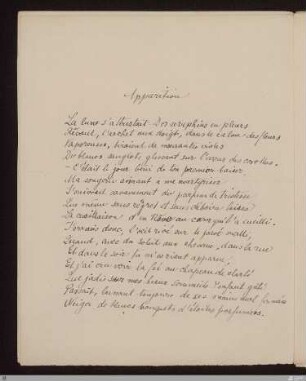 Apparition
La lune s'attristait. Des séraphins en pleurs
Rêvant, l'archet aux doigts, dans le calme des fleurs
Vaporeuses, tiraient de mourantes violes
De blancs sanglots glissant sur l'azur des corolles.
— C'était le jour béni de ton premier baiser.
Ma songerie aimant à me martyriser
S'enivrait savamment du parfum de tristesse
Que même sans regret et sans déboire laisse
La cueillaison d'un Rêve au cœur qui l'a cueilli.
J'errais donc, l'œil rivé sur le pavé vieilli,
Quand, avec du soleil aux cheveux, dans la rue
Et dans le soir, tu m'es en riant apparue,
Et j'ai cru voir la fée au chapeau de clarté
Qui jadis sur mes beaux sommeils d'enfant gâté
Passait, laissant toujours de ses mains mal fermées
Neiger de blancs bouquets d'étoiles parfumées.